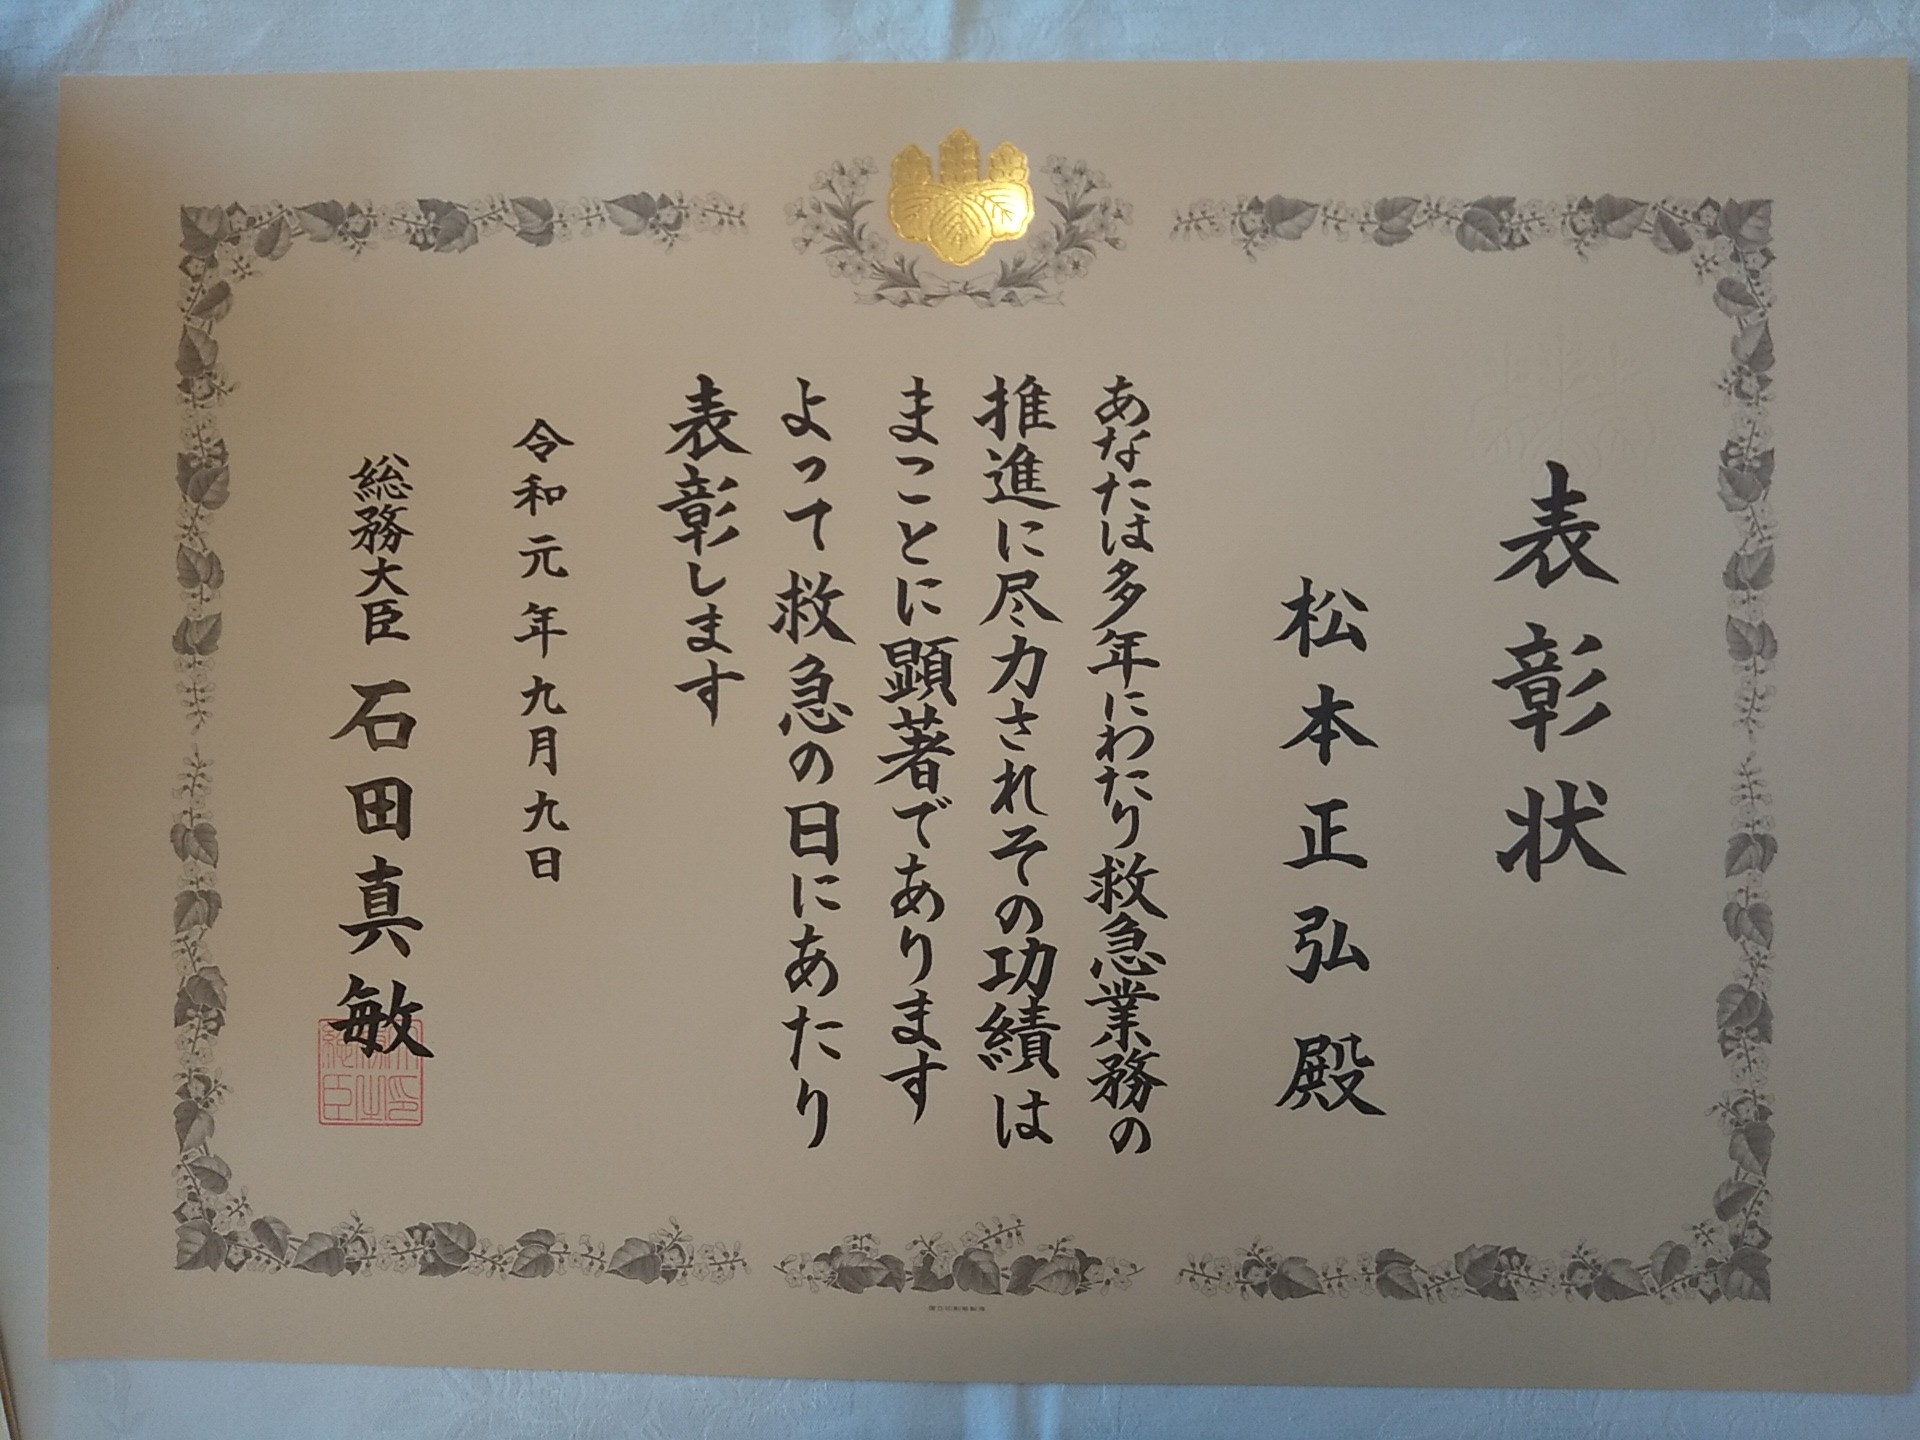 表彰状
松本正弘殿
あなたは多年にわたり救急業務の
推進に尽力されその功績は
まことに顕著であります
よって救急の日にあたり
表彰します
令和元年九月九日
総務大臣 石田真敏
総務大臣之印
国立印刷局製造